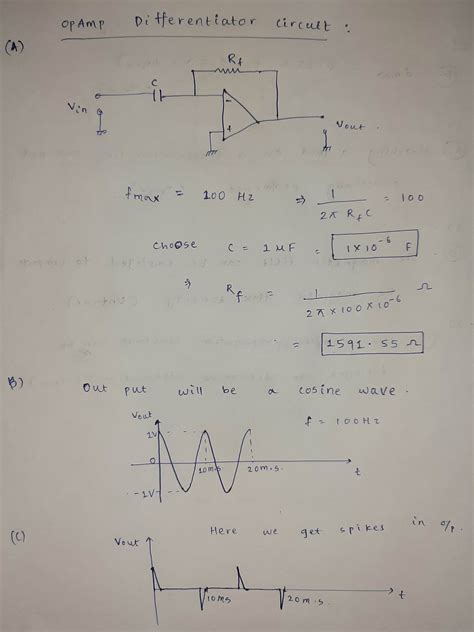 OpAmp Differentiator Circuit :
(A)
Rf
C
Vin
-
+
Vout .
fmax = 100 Hz ⇒ 1 / 2π Rf C = 100
choose C = 1 μF = 1×10⁻⁶ F
⇒ Rf = 1 / 2π × 100 × 10⁻⁶ Ω
= 1591.55 Ω
B) Out put will be a cosine wave .
Vout
f = 100Hz
1V
0
10m.s
20m.s.
t
-1V
(C) Here we get spikes in o/p.
Vout
10ms
20m.s.
t